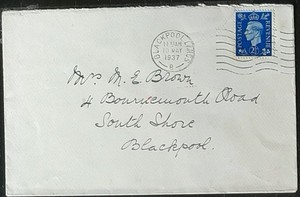 BLACKPOOL, LANCS.
11 15 AM
10 MAY
1937
B
POSTAGE
REVENUE
2½D
Mrs M. E. Brown
4 Bournemouth Road
South Shore
Blackpool.